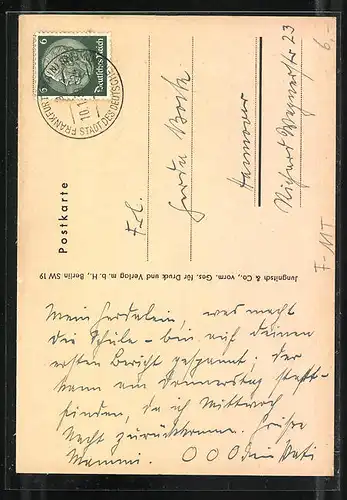 6
6
Deutsches Reich
FRANKFURT
STADT DES DEUTSCHEN
10.1
Postkarte
Frl.
Gerda
Hannover
Richard Wagnerstr 23
6,-
F-MT
Jungnitsch & Co., vorm. Ges. für Druck und Verlag m. b. H., Berlin SW 19
Mein Gerdalein, was macht
die Schule – bin auf deinen
ersten Bericht gespannt; der
kann am Donnerstag statt-
finden, da ich Mittwoch
Nacht zurückkomme. Grüße
Mammi. OOO Dein Vati